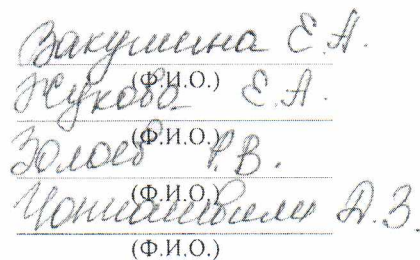 Вакулина Е.А.
(Ф.И.О.)
Жукова Е.А.
(Ф.И.О.)
Золоев Р.В.
(Ф.И.О.)
Д.З.
(Ф.И.О.)